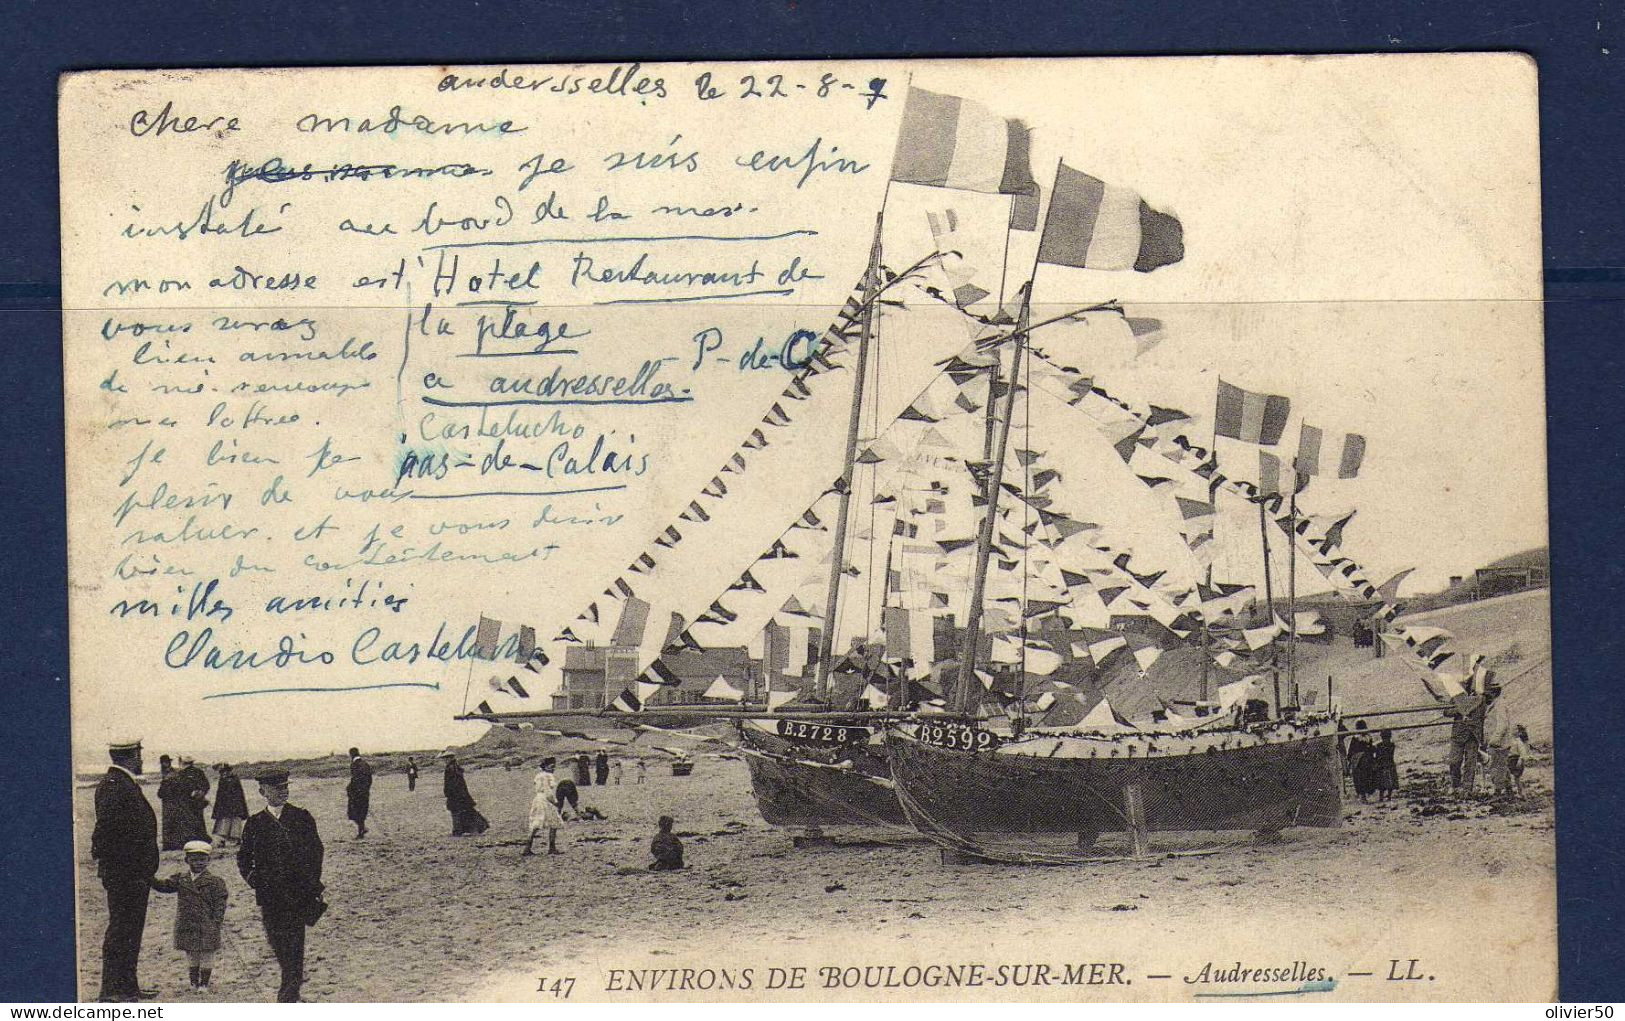 andersselles le 22-8-
chere madame
je suis enfin
instalé au bord de la mer.
mon adresse est Hotel Restaurant de
la plage
a audresselles. P-de-C
Castelucho
pas-de-Calais
vous serez
bien aimable
de
mes lettres.
je bien le
plesir de vous
saluer. et je vous
bien du contentement
milles amitiés
Claudio Castelucho
B.2728
B2592
147 ENVIRONS DE BOULOGNE-SUR-MER. — Audresselles. — LL.
olivier50